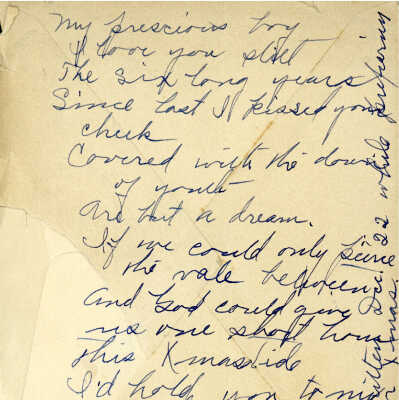 My prescious boy
I love you still
The six long years
Since last I kissed your
cheek
Covered with the down
of youth
Are but a dream.
If we could only
the vale between
And God could give
us one short hour
This Xmastide
I'd hold you to my
Dec. 22 while preparing
Xmas.